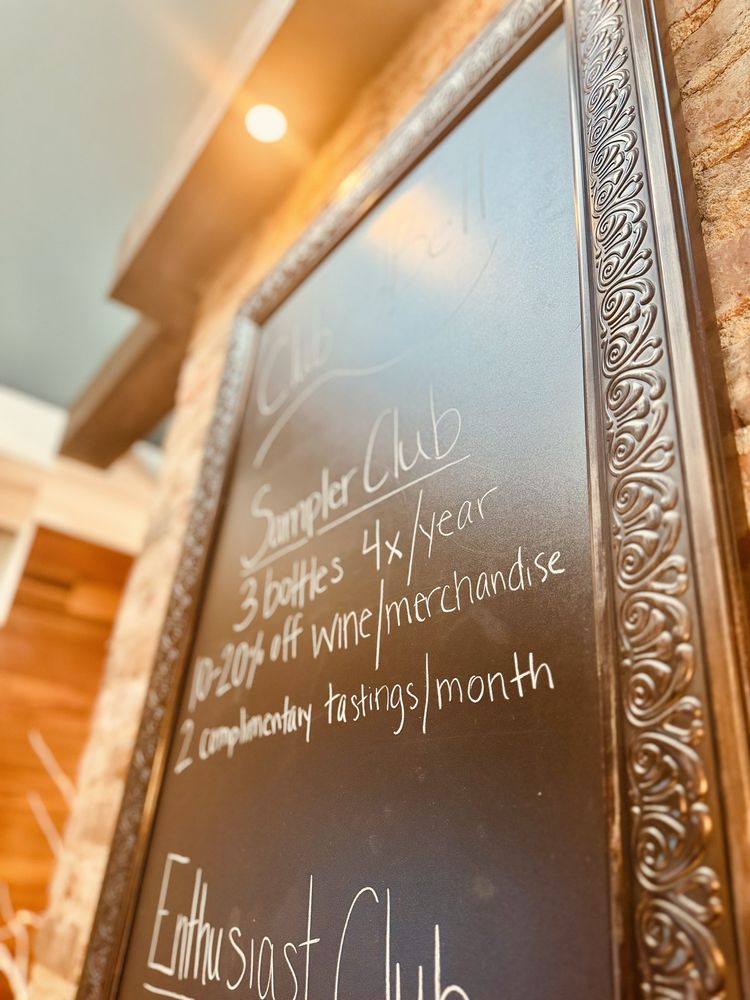 Club
Sampler Club
3 bottles 4x/year
10-20% off wine/merchandise
2 complimentary tastings/month
Enthusiast Club